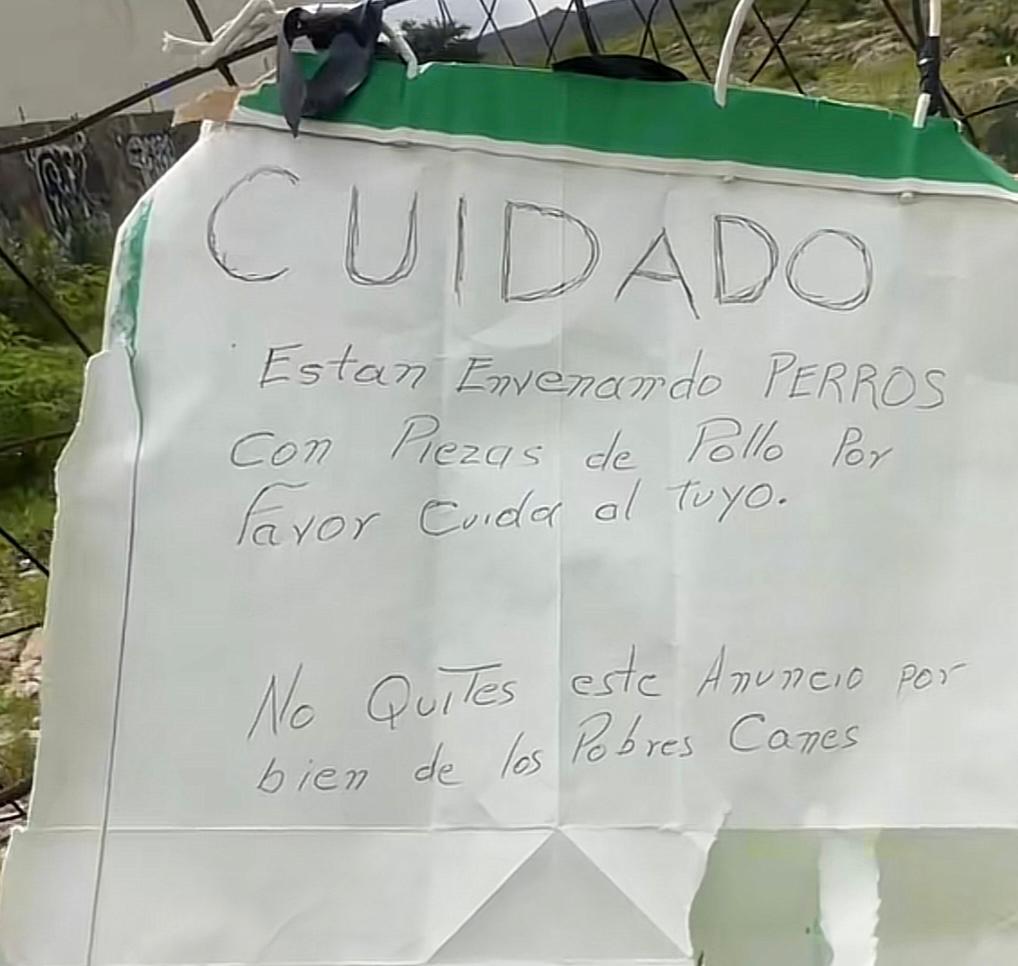 CUIDADO
Estan Envenando PERROS
Con Piezas de Pollo Por
Favor Cuida al tuyo.
No Quites este Anuncio por
bien de los Pobres Canes